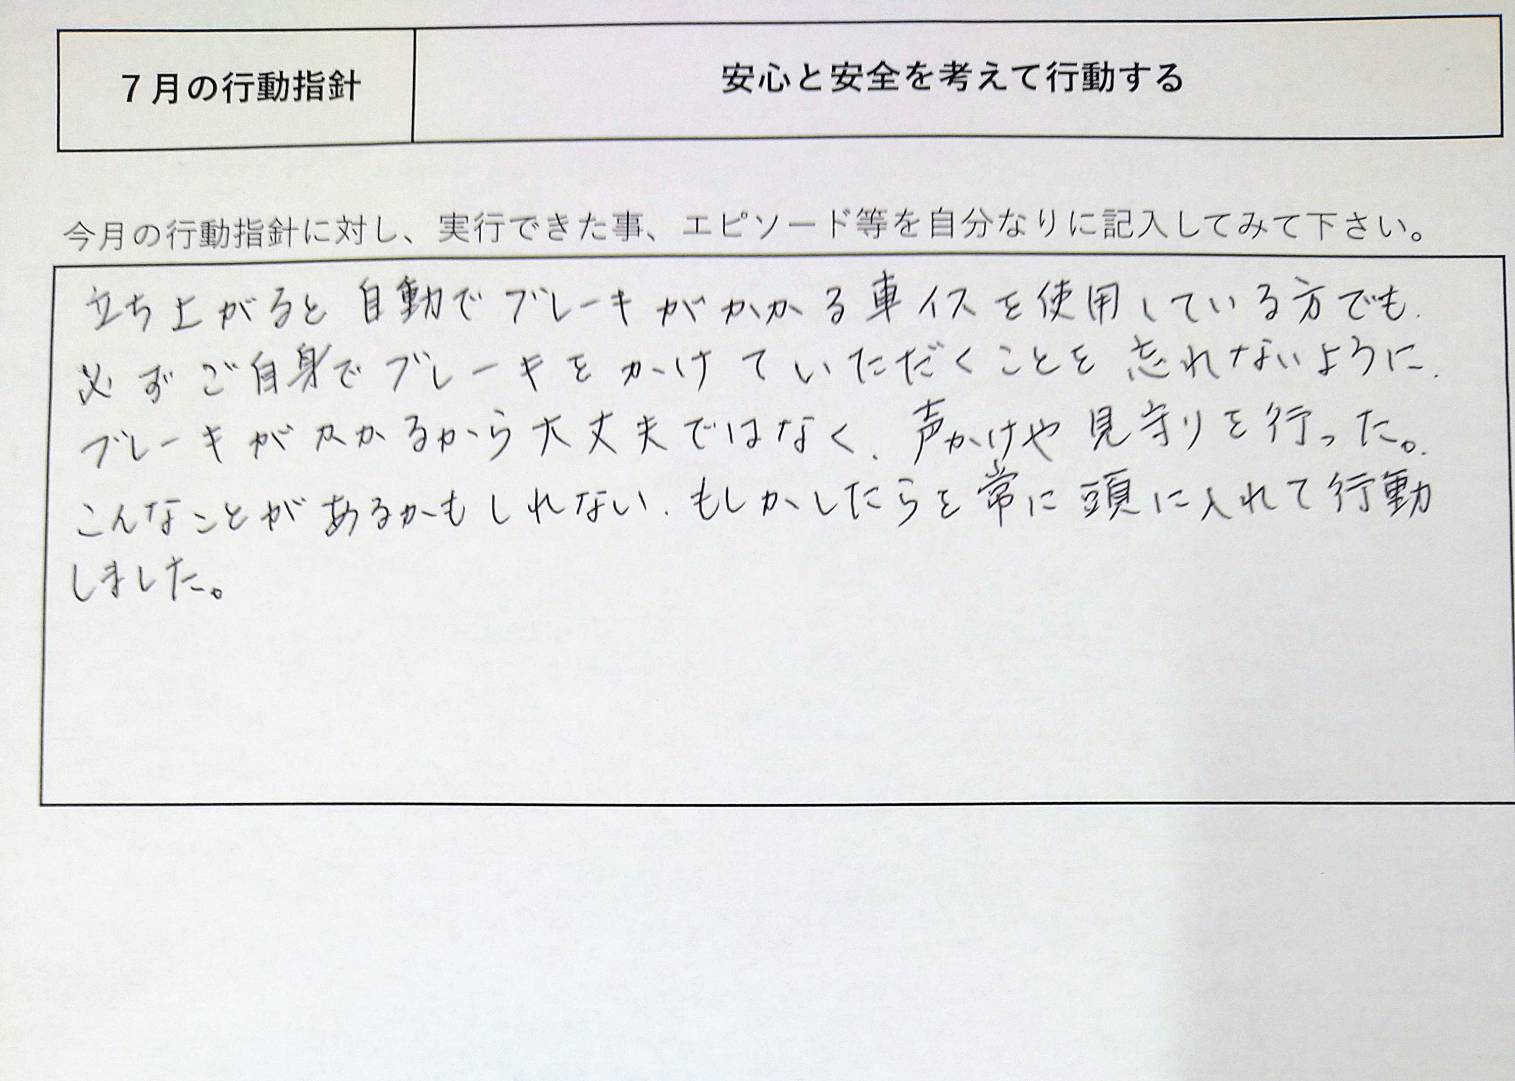 7月の行動指針
安心と安全を考えて行動する
今月の行動指針に対し、実行できた事、エピソード等を自分なりに記入してみて下さい。
立ち上がると自動でブレーキがかかる車イスを使用している方でも、
必ずご自身でブレーキをかけていただくことを忘れないように、
ブレーキがかかるから大丈夫ではなく、声かけや見守りを行った。
こんなことがあるかもしれない、もしかしたらを常に頭に入れて行動
しました。